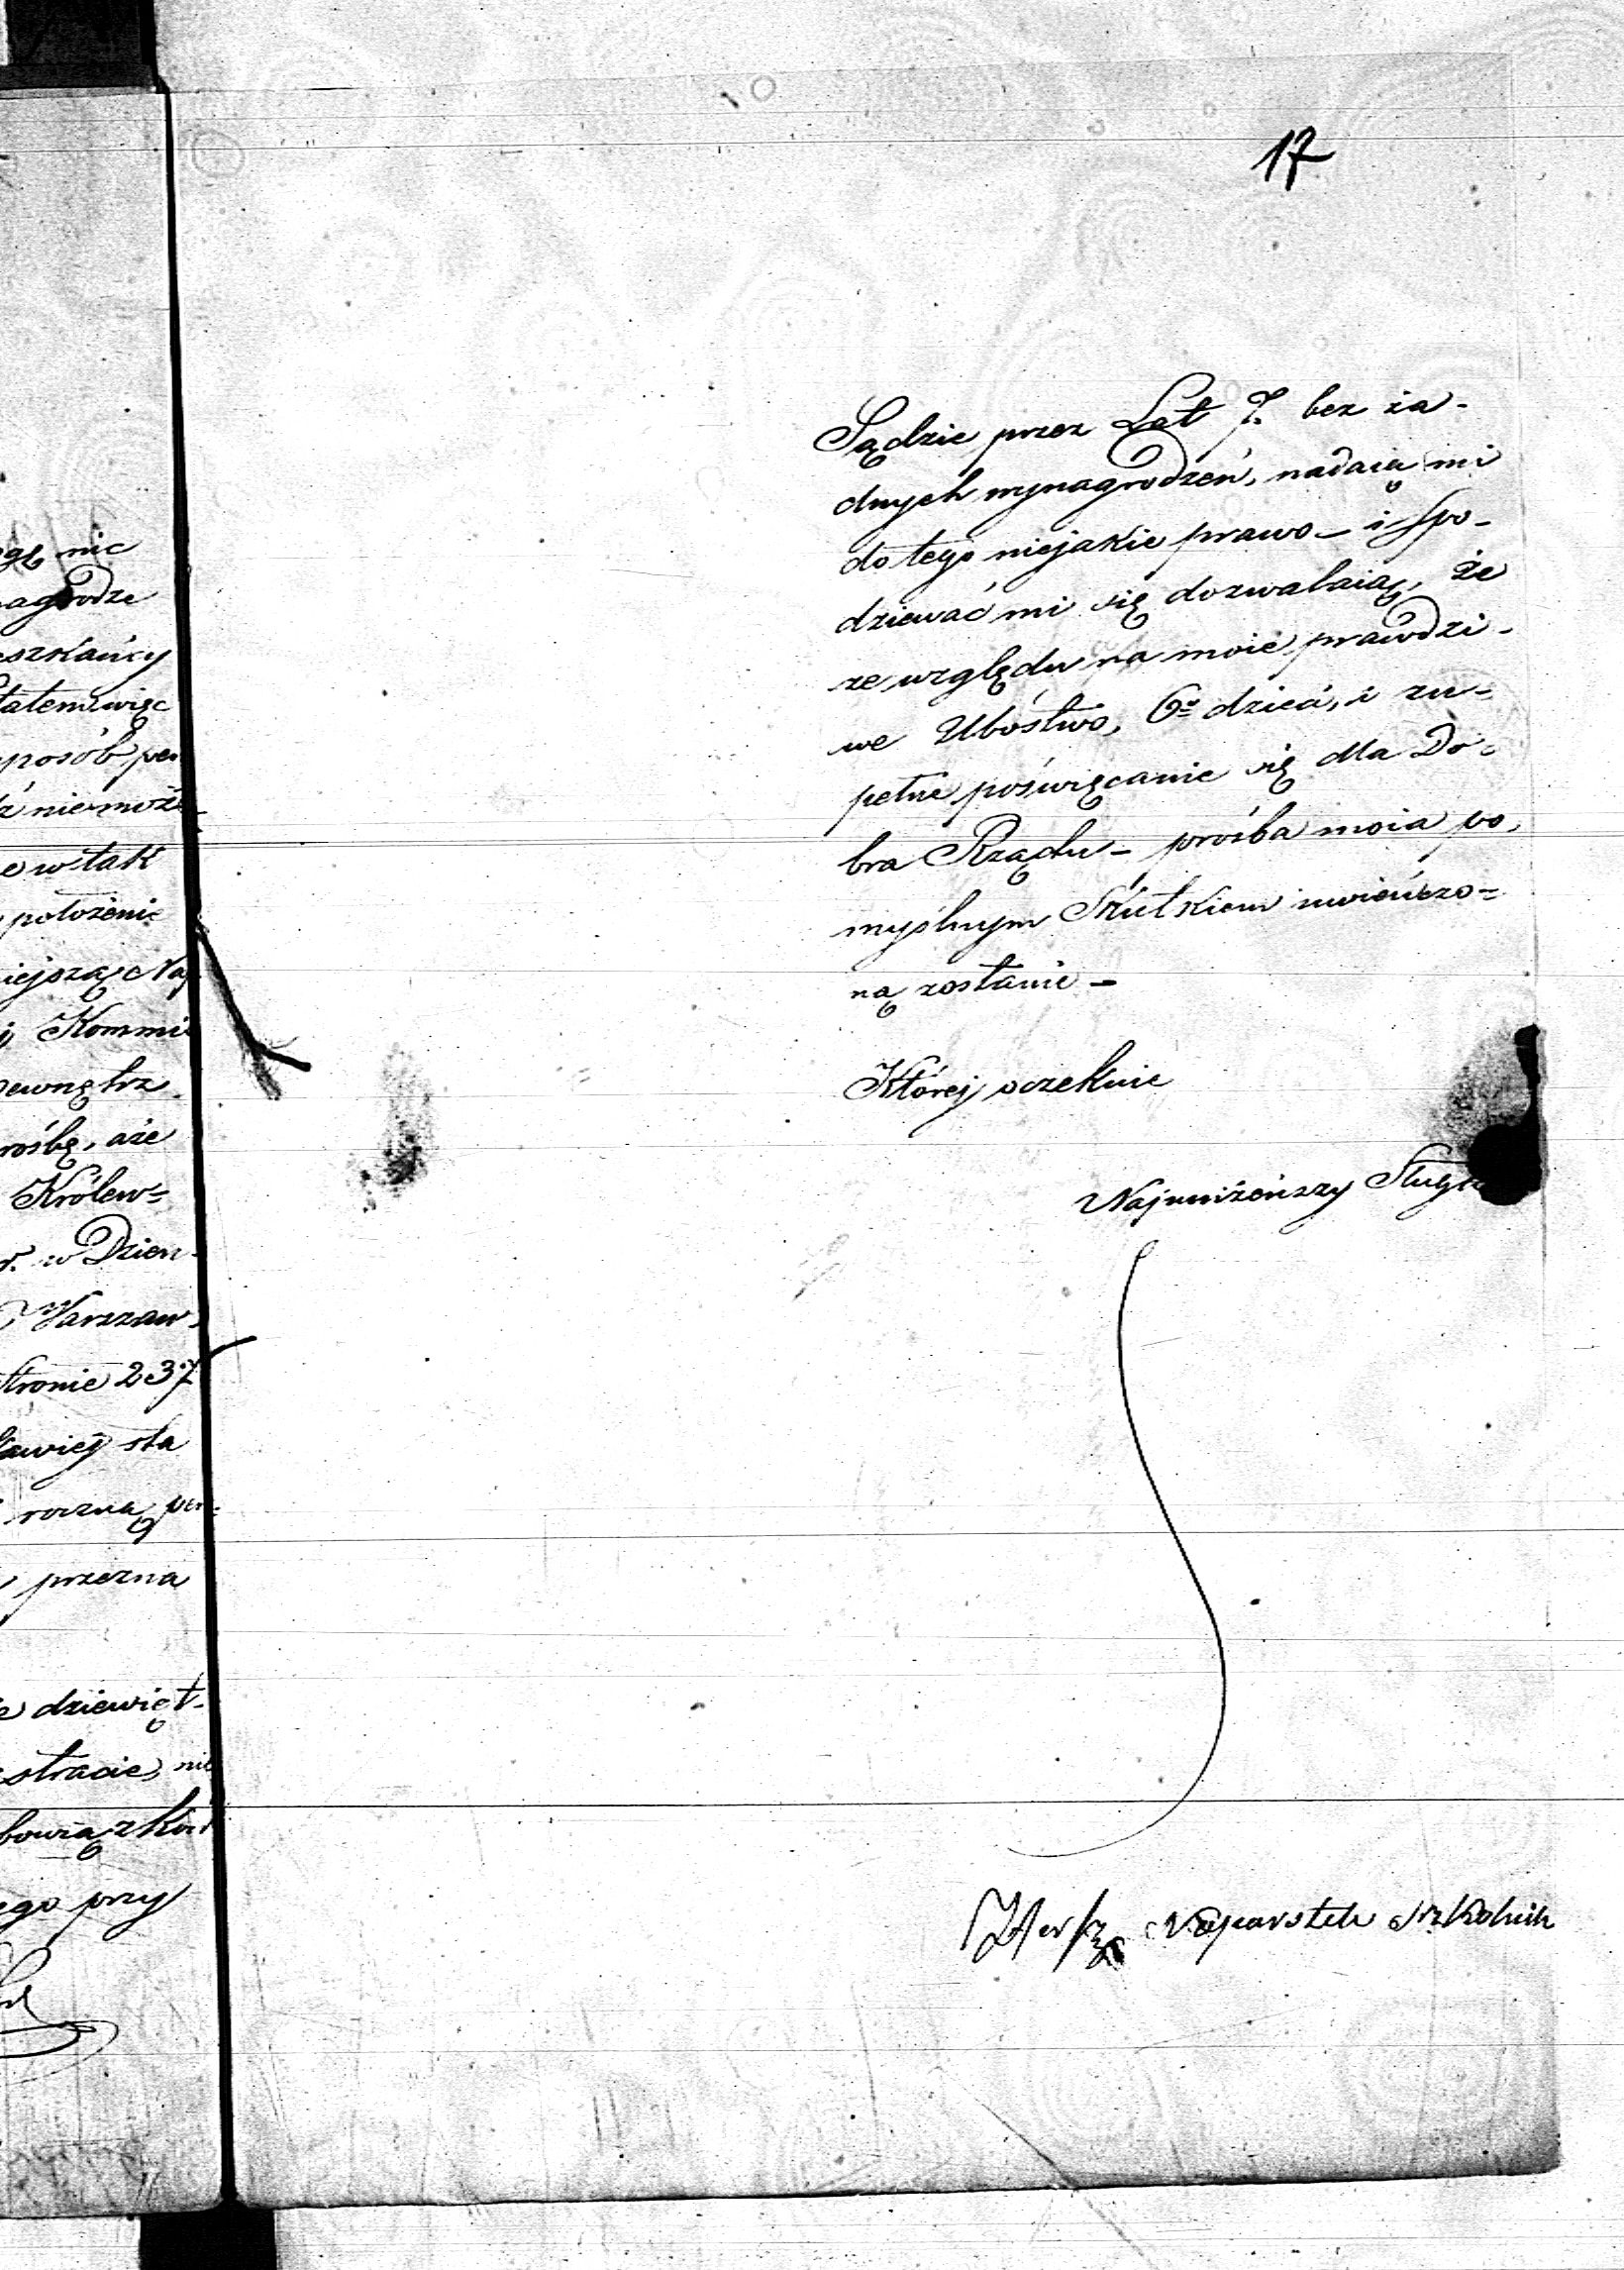 17
Sądzie przez Lat 7. bez ża-
dnych wynagrodzeń, nadaią mi
do tego niejakie prawo - i spo-
dziewać mi się dozwalaią, że
ze względu na moie prawdzi-
we Ubóstwo, 6º dzieci, i zu-
pełne poświęcanie się dla Do-
bra Rządu - prośba moia po-
myślnym Skutkiem uwieńczo-
ną zostanie -
Której oczekuie
Najuniżeńszy Sługa
Naparstek Szkolnik
nic
nagrodze
eszkańcy
więc
posób pen
niemoże
e w tak
położenie
iejszą Naj
Kommis
ewnętrz
rośbę, aże
Królew=
w Dzien-
Warszaw
stronie 237
sta
roczną pen=
przezna
dziewięt-
stracie, nie
bowiązków
ego przy